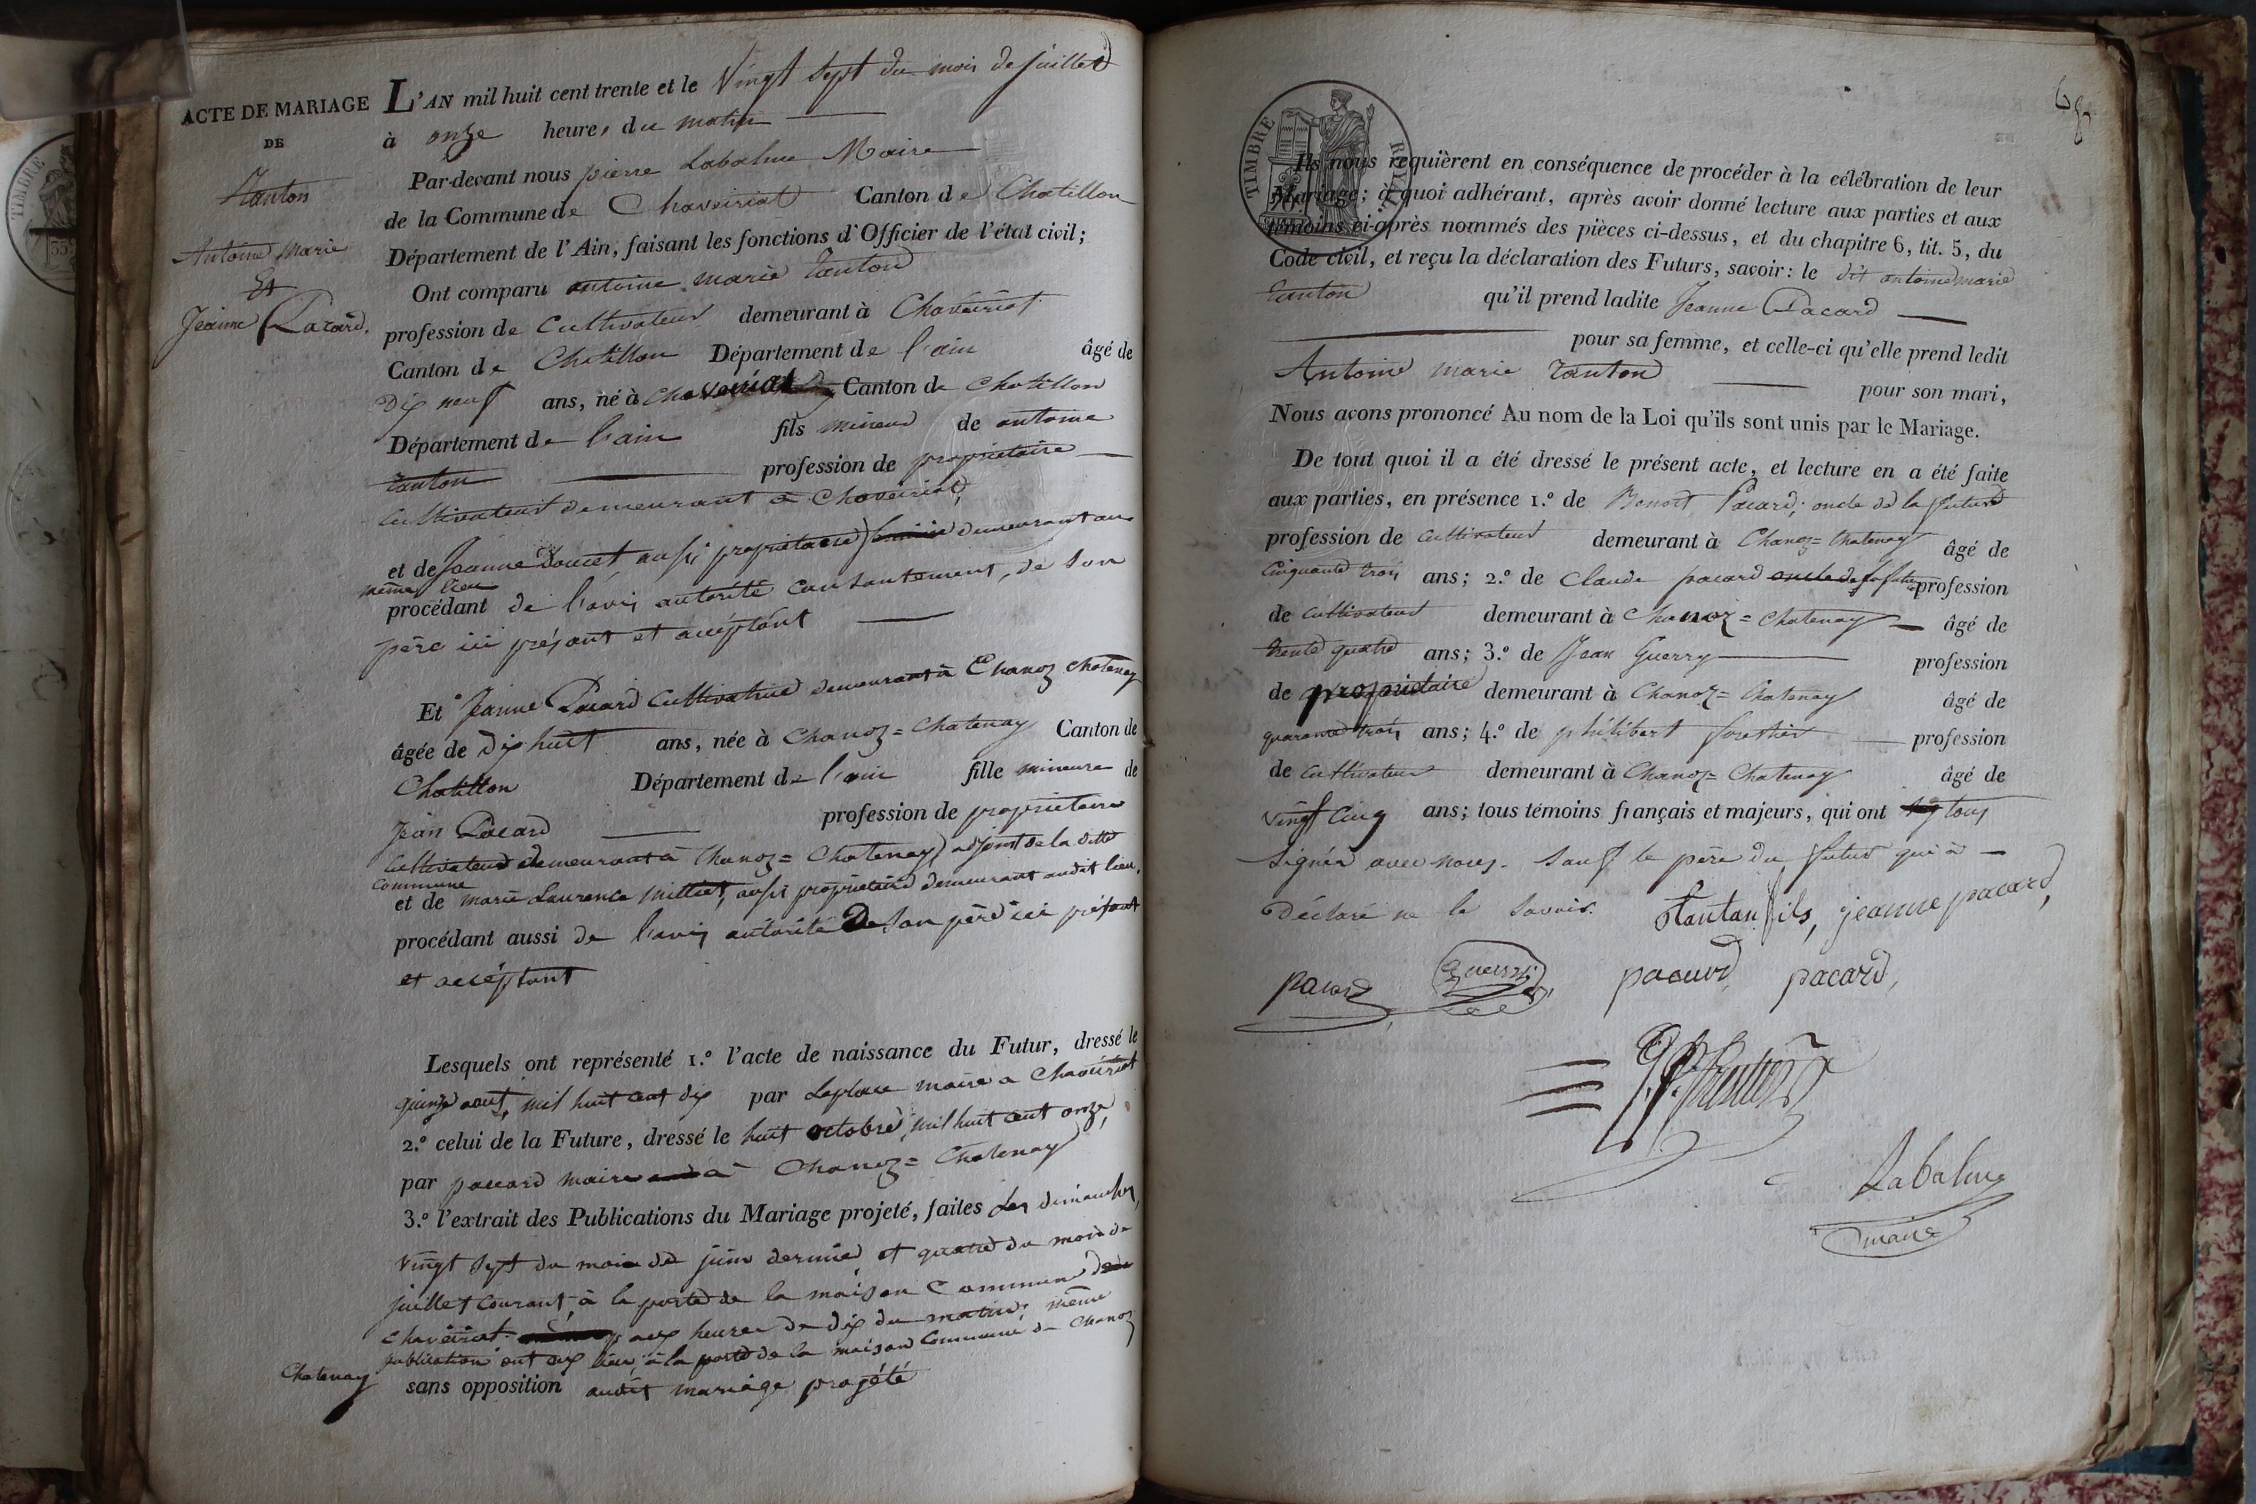 ACTE DE MARIAGE
DE
Tanton
Antoine Marie
Et
Jeanne Pacard.
L'AN mil huit cent trente et le Vingt sept du mois de juillet
à onze heures du matin
Par-devant nous pierre Labalme Maire
de la Commune de Chaveiriat Canton de Chatillon
Département de l'Ain, faisant les fonctions d'Officier de l'état civil;
Ont comparu antoine marie Tanton
profession de Cultivateur demeurant à Chaveiriat
Canton de Chatillon Département de l'ain âgé de
Dix neuf ans, né à chaveiriat Canton de chatillon
Département de l'ain fils mineur de antoine
Tanton profession de propriétaire
Cultivateur demeurant à Chaveiriat,
et de Jeanne Doucet aussi propriétaire demeurant au
même lieu
procédant de l'avis autorité consentement, de son
père ici présent et acceptant
Et Jeanne Pacard Cultivatrice demeurant à Chanoz Chatenay
âgée de dix huit ans, née à Chanoz=Chatenay Canton de
Chatillon Département de l'ain fille mineure de
Jean Pacard profession de propriétaire
Cultivateur demeurant à Chanoz=Chatenay, adjoint de la ditte
commune
et de marie Laurence Milliet, aussi propriétaire demeurant audit lieu,
procédant aussi de l'avis autorité De son père ici présent
et acceptant
Lesquels ont représenté 1.º l'acte de naissance du Futur, dressé le
quinze aout, mil huit cent dix par Laplace maire a Chaveiriat
2.º celui de la Future, dressé le huit octobre, mil huit cent onze,
par paccard maire à Chanoz=Chatenay
3.º l'extrait des Publications du Mariage projeté, faites Les dimanches,
vingt sept du mois de juin dernier et quatre du mois de
juillet courant, à la porte de la maison Commune de
chaveiriat. aux heures de dix du matin; même
publication ont eux lieu, à la porte de la maison Commune de Chanoz
Chatenay
sans opposition audit mariage projété
68
TIMBRE ROYAL
Ils nous requièrent en conséquence de procéder à la célébration de leur
Mariage; à quoi adhérant, après avoir donné lecture aux parties et aux
témoins ci-après nommés des pièces ci-dessus, et du chapitre 6, tit. 5, du
Code civil, et reçu la déclaration des Futurs, savoir: le dit antoine marie
Tanton qu'il prend ladite Jeanne Pacard
pour sa femme, et celle-ci qu'elle prend ledit
Antoine marie Tanton pour son mari,
Nous avons prononcé Au nom de la Loi qu'ils sont unis par le Mariage.
De tout quoi il a été dressé le présent acte, et lecture en a été faite
aux parties, en présence 1.º de Benoit Pacard, oncle de la future
profession de cultivateur demeurant à Chanoz=Chatenay âgé de
Cinquante trois ans; 2.º de Claude pacard oncle de la future profession
de cultivateur demeurant à Chanoz=Chatenay âgé de
trente quatre ans; 3.º de Jean Guerry profession
de propriétaire demeurant à Chanoz=Chatenay âgé de
quarante trois ans; 4.º de philibert forestier profession
de cultivateur demeurant à Chanoz=Chatenay âgé de
vingt cinq ans; tous témoins français et majeurs, qui ont tous
signés avec nous. Sauf le père du futur qui a
Déclaré ne le savoir. tantan fils, jeanne pacard,
pacard Guerry pacard, pacard,
Labalme
maire